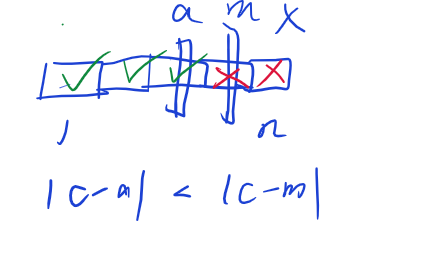 a m x
1 n
|c-a| < |c-m|